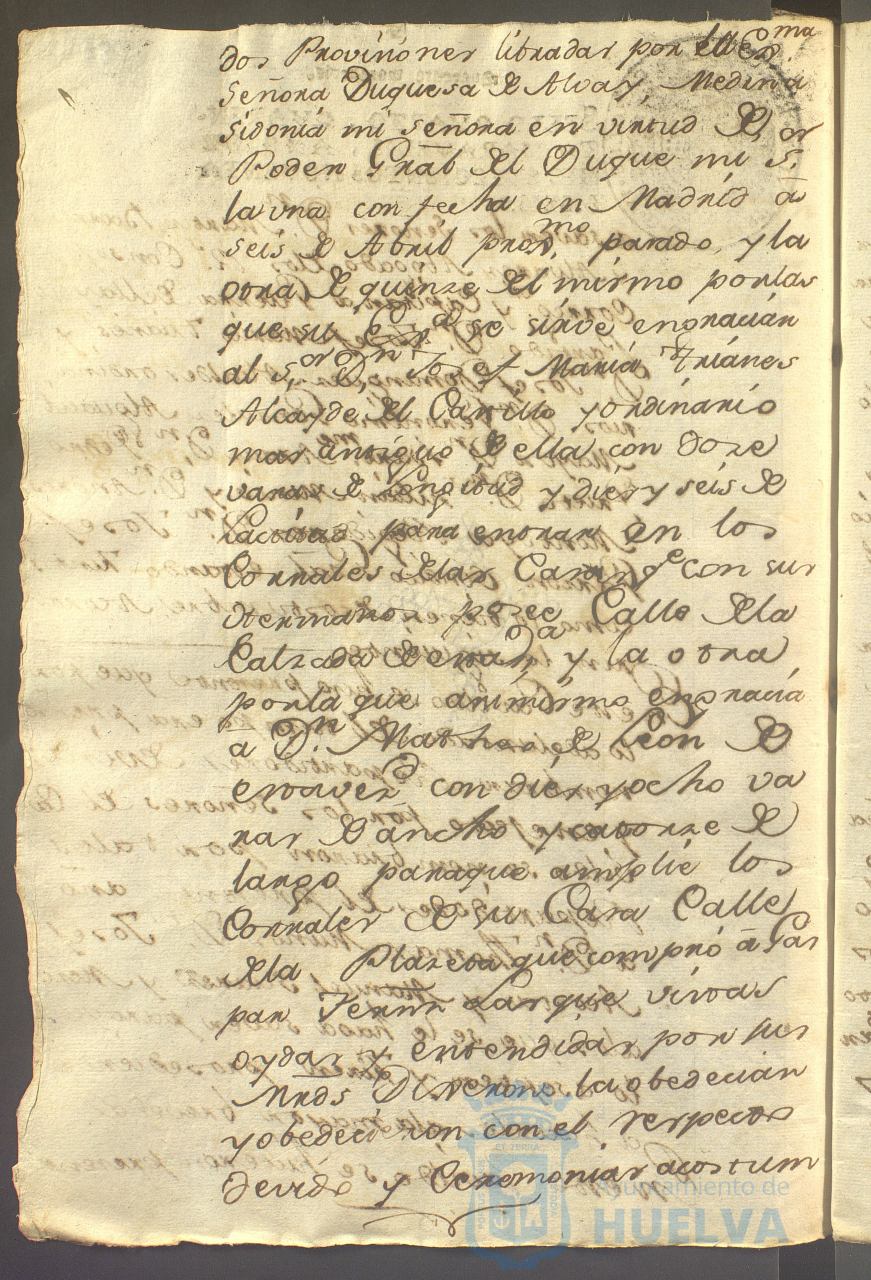 dos Provisiones libradas por la Exma
Señora Duquesa de Alva y Medina
sidonia mi señora en virtud del
Poder Gral del Duque mi Sor
la una con fecha en Madrid a
seis de Abril proxmo pasado, y la
otra de quinze del mismo por las
que su Exa se sirve engraciar
al Sor Dn Josef Maria Trianes
Alcayde del Castillo y ordinario
mas antiguo de ella con doze
varas de Longitud y diez y seis de
Lactitud para entrar en los
Corrales de las Casas qe con sus
Hermanos posee Calle de la
Calzada de esta va, y la otra
por la que asimismo engracia
a Dn Matheo de Leon de
esta vezd con diez y ocho va
ras de ancho y catorze de
largo para que amplie los
Corrales de su Casa Calle
de la Plazeta que compró a Gas
par Las que vistas
oydas y entendidas por sus
Mrds Dixeron la obedecian
y obedecieron con el respecto
devido y Ceremonias acostum
Ayuntamiento de
HUELVA